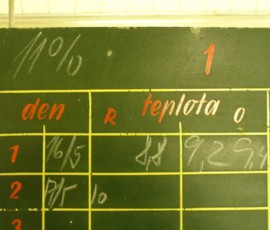 11% 1
den R teplota O
1 16/5 8,8 9,2 9,4
2 17/5 10
3